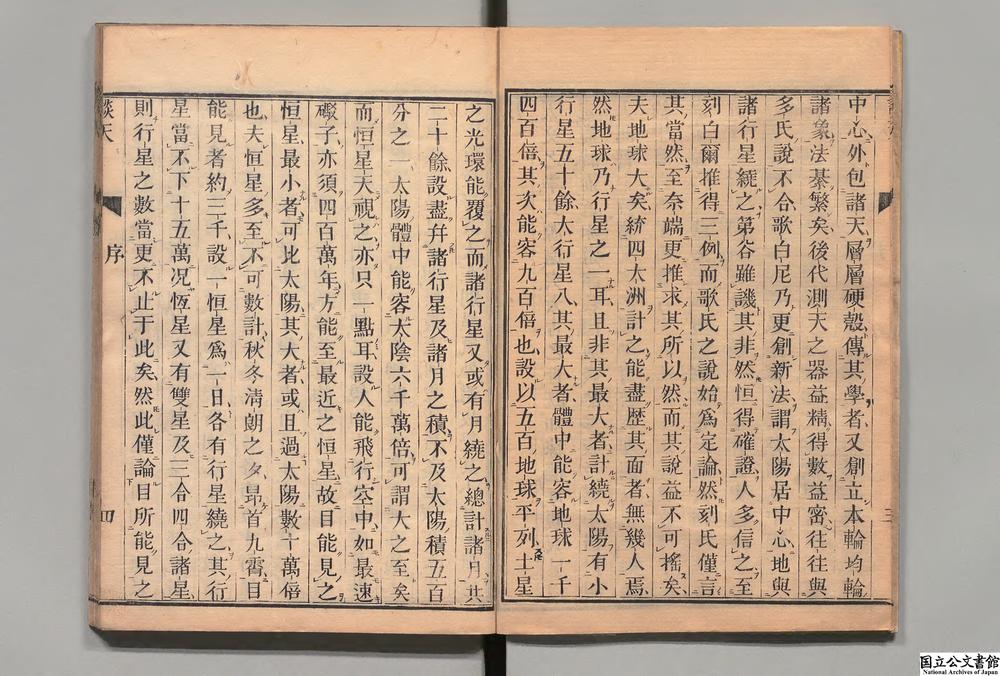 中心外包諸天層層硬殼傳其學者又創立本輪均輪
諸象法綦繁矣後代測天之器益精得數益密往往與
多氏說不合歌白尼乃更創新法謂太陽居中心地與
諸行星繞之第谷雖譏其非然恒得確證人多信之至
刻白爾推得三例而歌氏之說始爲定論然刻氏僅言
其當然至奈端更推求其所以然而其說益不可搖矣
夫地球大矣統四大洲計之能盡歷其面者無幾人焉
然地球乃行星之一耳且非其最大者計繞太陽有小
行星五十餘大行星八其最大者體中能容地球一千
四百倍其次能容九百倍也設以五百地球平列土星
三
之光環能覆之而諸行星又或有月繞之總計諸月共
二十餘設盡幷諸行星及諸月之積不及太陽積五百
分之一太陽體中能容太陰六千萬倍可謂大之至矣
而恒星天視之亦只一點耳設人能飛行空中如最速
礮子亦須四百萬年方能至最近之恒星故目能見之
恒星最小者可比太陽其大者或且過太陽數十萬倍
也夫恒星多至不可數計秋冬淸朗之夕昂首九霄目
能見者約三千設一恒星爲一日各有行星繞之其行
星當不下十五萬况恆星又有雙星及三合四合諸星
則行星之數當更不止于此矣然此僅論目所能見之
談天
序
四
国立公文書館
National Archives of Japan